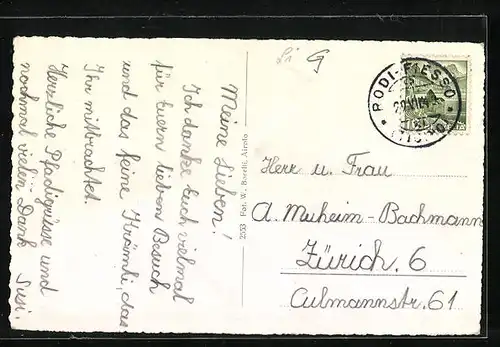 Meine Lieben!
Ich danke Euch vielmal
für Euern lieben Besuch
und das feine Krömli, das
Ihr mitbrachtet.
Herzliche Pfadigrüsse und
nochmal vielen Dank Susi.
2353 Fot. W. Borelli, Airolo
Li G
RODI-FIESSO
(TICINO)
Herr u. Frau
A. Muheim-Bachmann
Zürich. 6
Culmannstr. 61